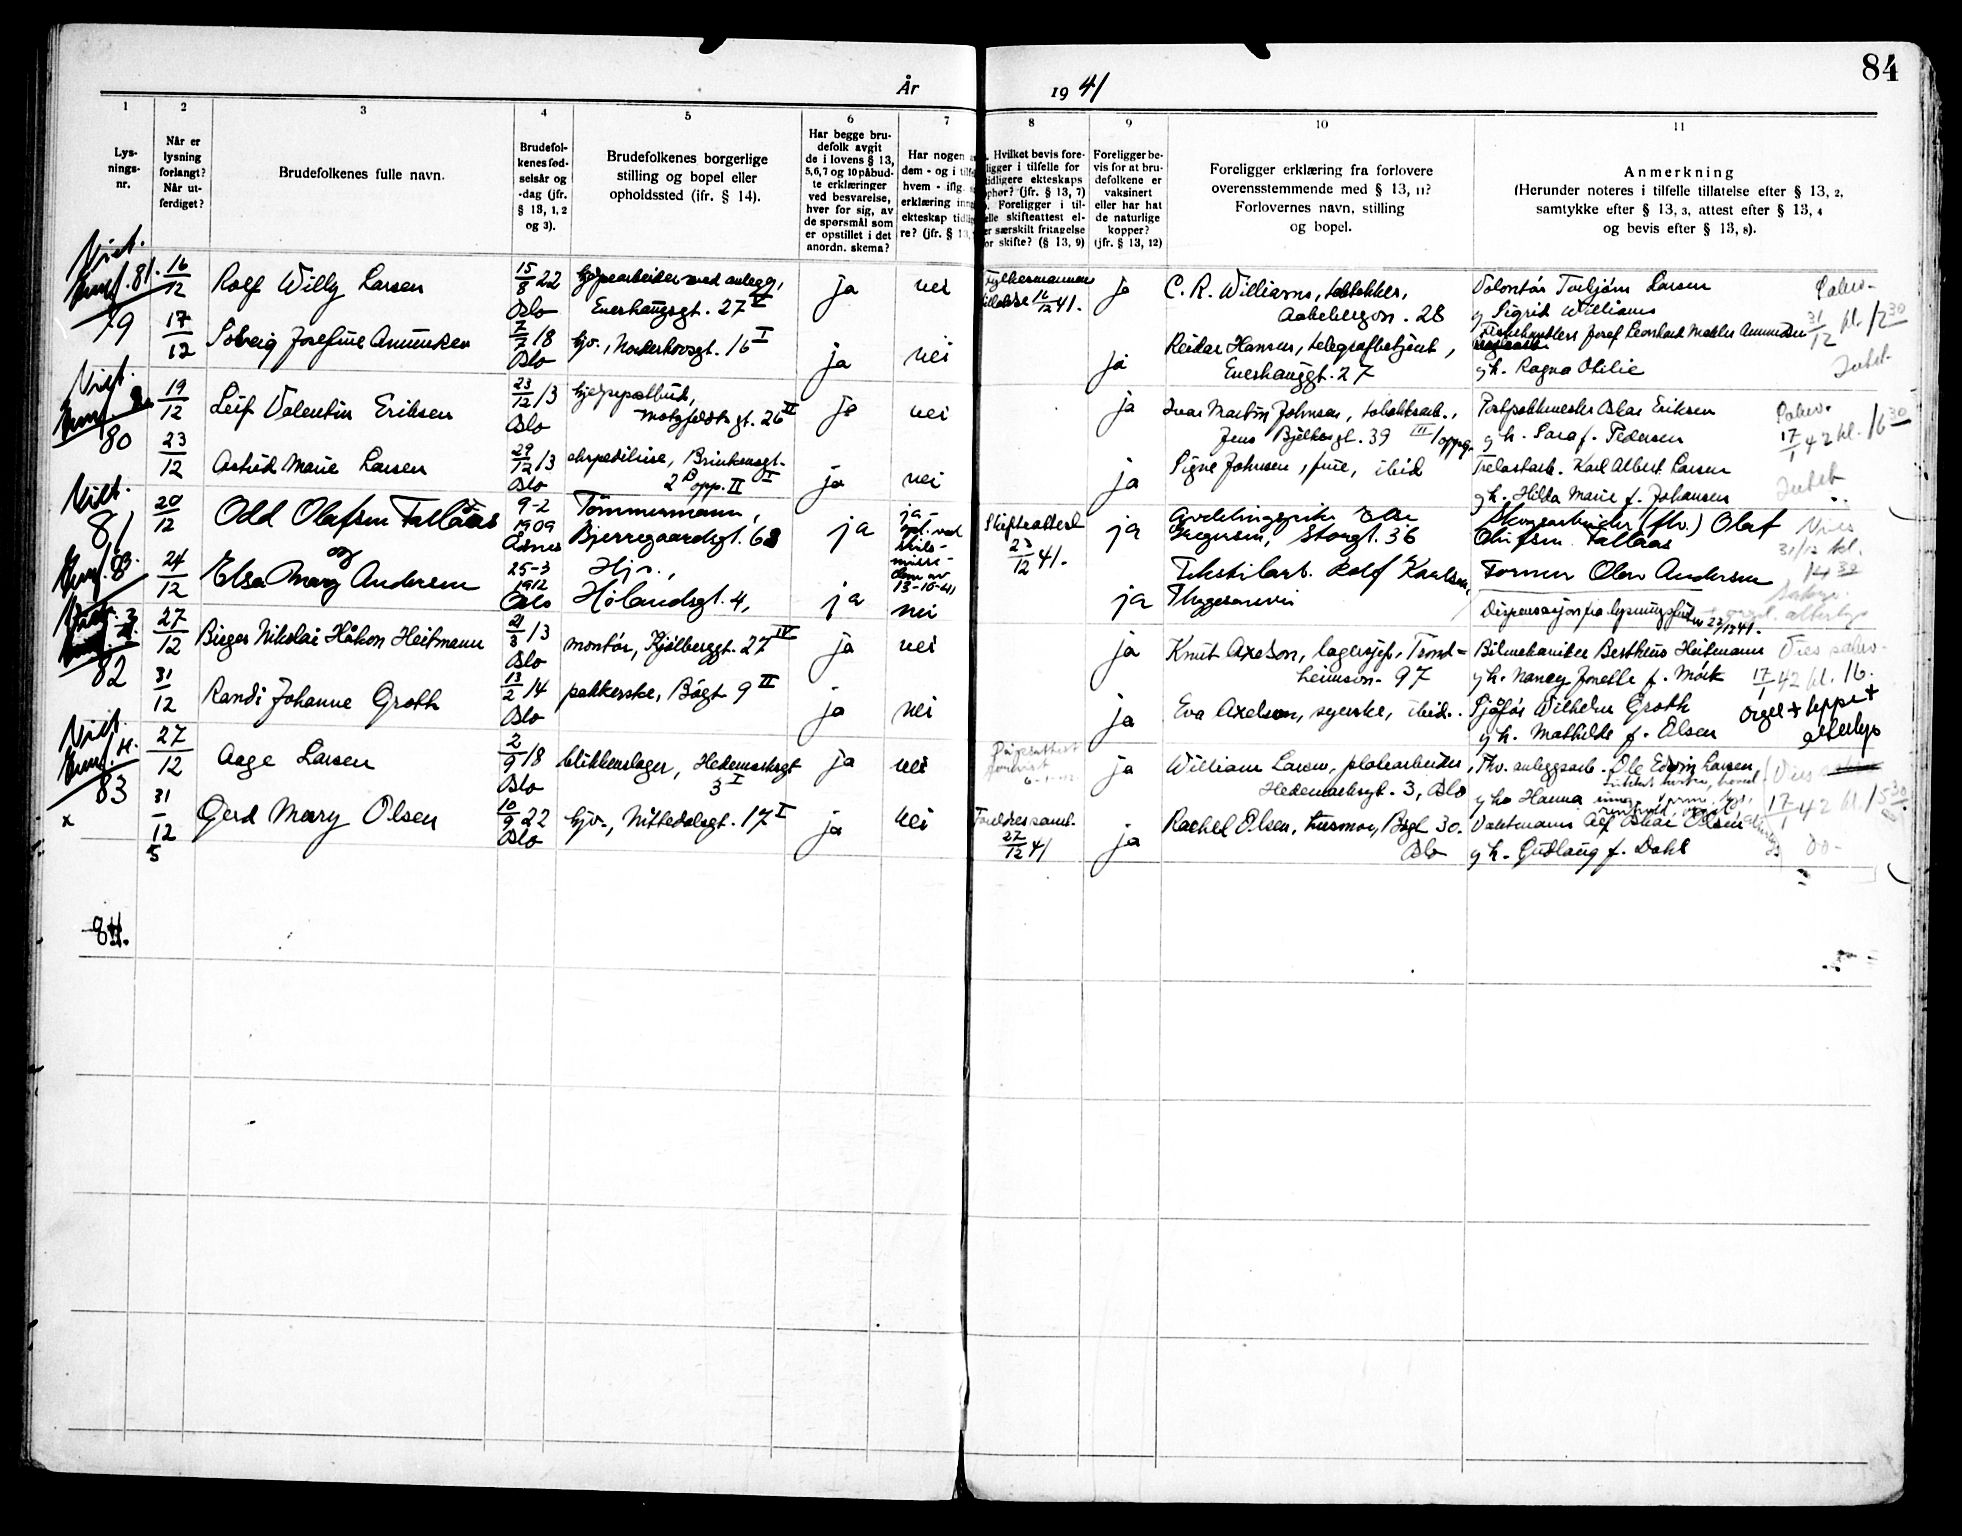 84
År 1941
1 2 3 4 5 6 7 8 9 10 11
Lys-
nings-
nr.
Når er
lysning
forlangt?
Når ut-
ferdiget?
Brudefolkenes fulle navn.
Brudefol-
kenes fød-
selsår og
-dag (jfr.
§ 13, 1, 2
og 3).
Brudefolkenes borgerlige
stilling og bopel eller
opholdssted (ifr. § 14).
Har begge bru-
defolk avgit
de i lovens § 13,
5,6,7 og 10 påbud-
te erklæringer
ved besvarelse,
hver for sig, av
de spørsmål som
er opstillet i det
anordn. skema?
Har nogen
dem - og i
hvem - iflg.
erklæring
ekteskap
re? (jfr. § 13,
Hvilket bevis fore-
ligger i tilfelle for
tidligere ekteskaps
ophør? (jfr. § 13, 7)
Foreligger i til-
elle skifteattest el-
er særskilt fritagelse
or skifte? (§ 13, 9)
Foreligger be-
vis for at bru-
defolkene er
vaksinert
eller har hat
de naturlige
kopper?
(jfr. § 13, 12)
Foreligger erklæring fra forlovere
overensstemmende med § 13, 11?
Forlovernes navn, stilling
og bopel.
Anmerkning
(Herunder noteres i tilfelle tillatelse efter § 13, 2,
samtykke efter § 13, 3, attest efter § 13, 4
og bevis efter § 13, 8).
Viet.
81.
79
16/12
Rolf Willy Larsen
15/8 22
Oslo
hjelpearbeider ved anlegg,
Enerhaugsgt. 27 V
ja
nei
Fylkesmannens
16/12 41.
ja
C. R. Williams,
Aakebergvn. 28
Volontør Torbjørn Larsen
g Sigrid Williams
17/12
Solveig Josefine Amundsen
7/7 18
Oslo
hjv., Norderhovsgt. 16 I
ja
nei
ja
Reidar Hansen, telegrafbetjent,
Enerhauggt. 27
Fiskehandler Josef Leonhard Amundsen
g h. Ragna Otilie
31/12 kl. 12 30
Viet.
80
19/12
Leif Valentin Eriksen
23/12 13
Oslo
hjelpepostbud,
Motzfeldts gt. 26 II
ja
nei
ja
Ivar Martin Johnsen,
Jens Bjelkesgt. 39 III/oppg.
Postpakkmester Oskar Eriksen
g h. Sara f. Pedersen
17/1 42 kl. 16 30
23/12
Astrid Marie Larsen
29/12 13
Oslo
ekspeditrise, Brinkensgt.
2 B opp. II
ja
nei
ja
Signe Johnsen, frue, ibid
Trelastarb. Karl Albert Larsen
g h. Hilda Marie f. Johansen
Viet.
81
20/12
Odd Olafsen Tallaas
9-2
1909
Åsnes
Tömmermann,
Bjerregaardsgt. 68
ja
ja -
13-10-41
Skifteattest
23/12 41.
ja
Gregersen, Storgt. 36
Skogsarbeider (fhv.) Olaf
Olufsen Tallaas
31/12 kl.
og
24/12
Elsa Mary Andersen
25-3
1912
Oslo
Hjv.,
Hölandsgt. 4,
ja
nei
ja
Tekstilarb. Rolf Karlsen,
Former Olav Andersen
27/12
82
Birger Nikolai Håkon Heitmann
21/3 13
Oslo
montør, Kjølberggt. 27 IV
ja
nei
ja
Knut Axelson, lagersjef, Trond-
heimsvn. 97
Bilmekaniker Bertheus Heitmann
g h. Nancy Jonette f. Mörk
17/1 42 kl. 16.
31/12
Randi Johanne Groth
13/2 14
Oslo
pakkerske, Bøgt 9 II
ja
nei
ja
Eva Axelson, syerske, ibid.
Sjåfør Wilhelm Groth
g h. Mathilde f. Olsen
Orgel + teppe +
alterlys
Viet.
83
27/12
Aage Larsen
2/9 18
Oslo
blikkenslager, Hedemarksgt
3 I
ja
nei
ja
William Larsen, platearbeider,
Hedemarksgt. 3, Oslo
Fhv. anleggsarb. Ole Edvin Larsen
g h. Hanna
17/1 42 kl. 15 30
x
31/12
Gerd Mary Olsen
10/9 22
Oslo
hjv., Nittedalsgt. 17 I
ja
nei
Foreldres saml.
27/12 41
ja
Rachel Olsen, husmor, Bøgt 30.
Oslo
Vaktmann Alf Oskar Olsen
g h. Gudlaug f. Dahl
84.